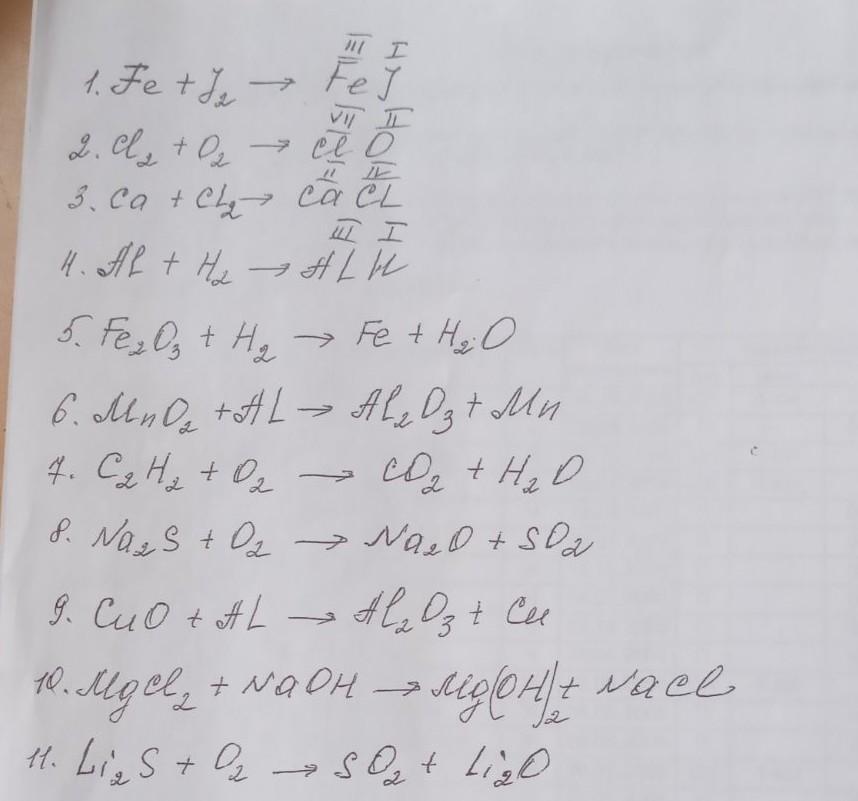 III I
1. Fe + J₂ → Fe J
VII II
2. Cl₂ + O₂ → Cl O
II IV
3. Ca + CL₂ → Ca CL
III I
4. AL + H₂ → AL H
5. Fe₂O₃ + H₂ → Fe + H₂O
6. MnO₂ + AL → Al₂O₃ + Mn
7. C₂H₂ + O₂ → CO₂ + H₂O
8. Na₂S + O₂ → Na₂O + SO₂
9. CuO + AL → Al₂O₃ + Cu
10. MgCl₂ + NaOH → Mg(OH)₂ + NaCl
11. Li₂S + O₂ → SO₂ + Li₂O